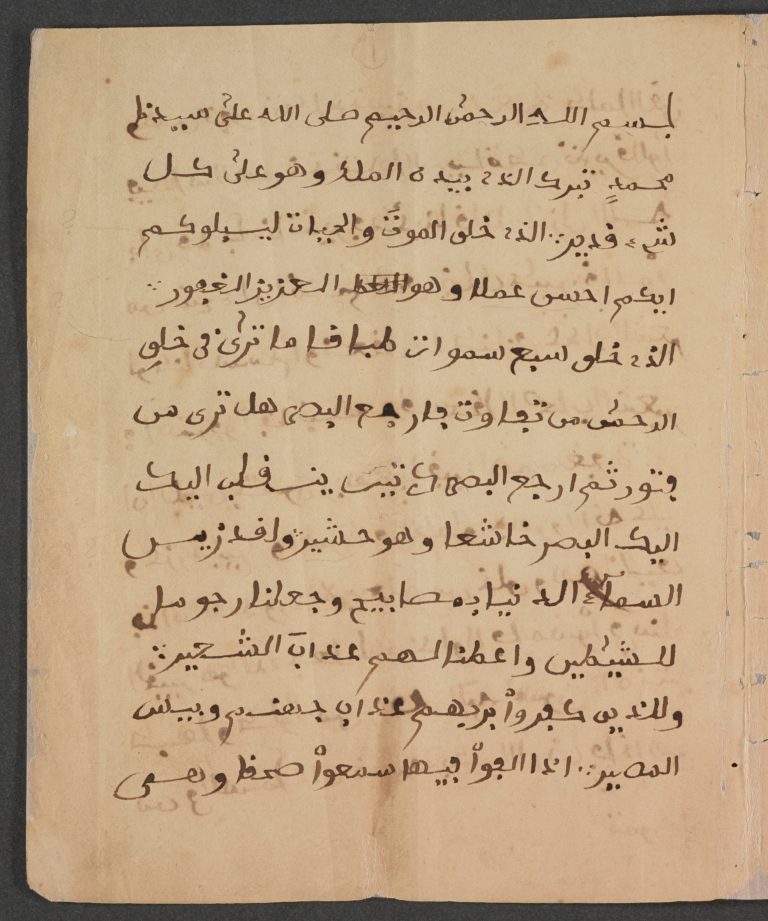 بسم الله الرحمن الرحيم صلى الله على سيدنا
محمد تبرك الذى بيده الملك وهو على كل
شىء قدير الذى خلق الموت والحيات ليبلوكم
ايكم احسن عملا وهو العزيز الغفور
الذى خلق سبع سموات طباقا ما ترى فى خلق
الرحمن من تفاوت فارجع البصر هل ترى من
فتور ثم ارجع البصر ينقلب اليك
اليك البصر خاشعا وهو حسير ولقد زين
السماء الدنيا بمصابيح وجعلنا رجوما
للشيطين واعطنا لهم عذاب الشعير
وللذين كفروا بربهم عذاب جهنم وبيس
المصير اذا القوا فيها سمعوا وهى